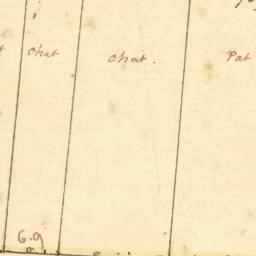 Chat Chat. Pat
6.9